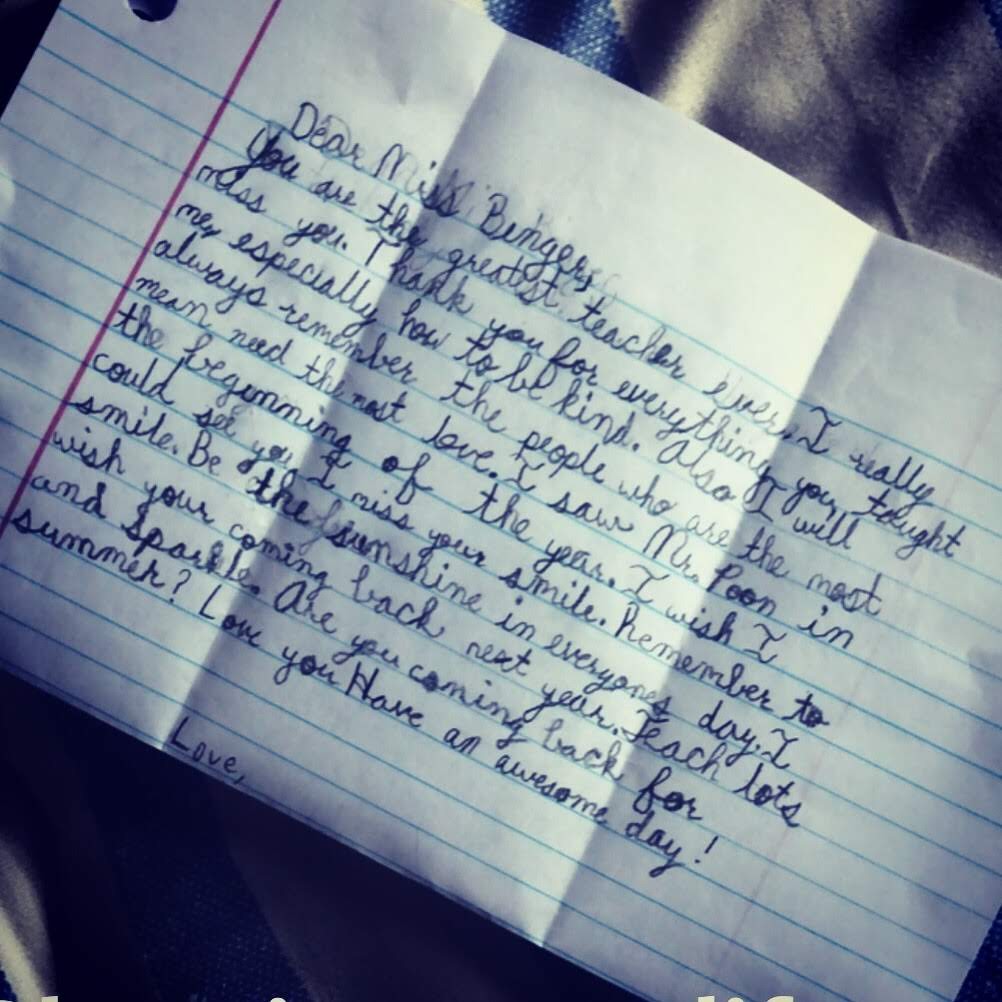 Dear Miss Bingers,
You are the greatest teacher ever. I really
miss you. Thank you for everything you tought
me, especially how to be kind. Also I will
always remember the people who are the most
mean need the most love. I saw Mr. Poon in
the beginning of the year. I wish I
could see you I miss your smile. Remember to
smile. Be the sunshine in everyones day. I
wish your coming back next year. Teach lots
and Sparkle. Are you coming back for
summer? Love you Have an awesome day!
Love,